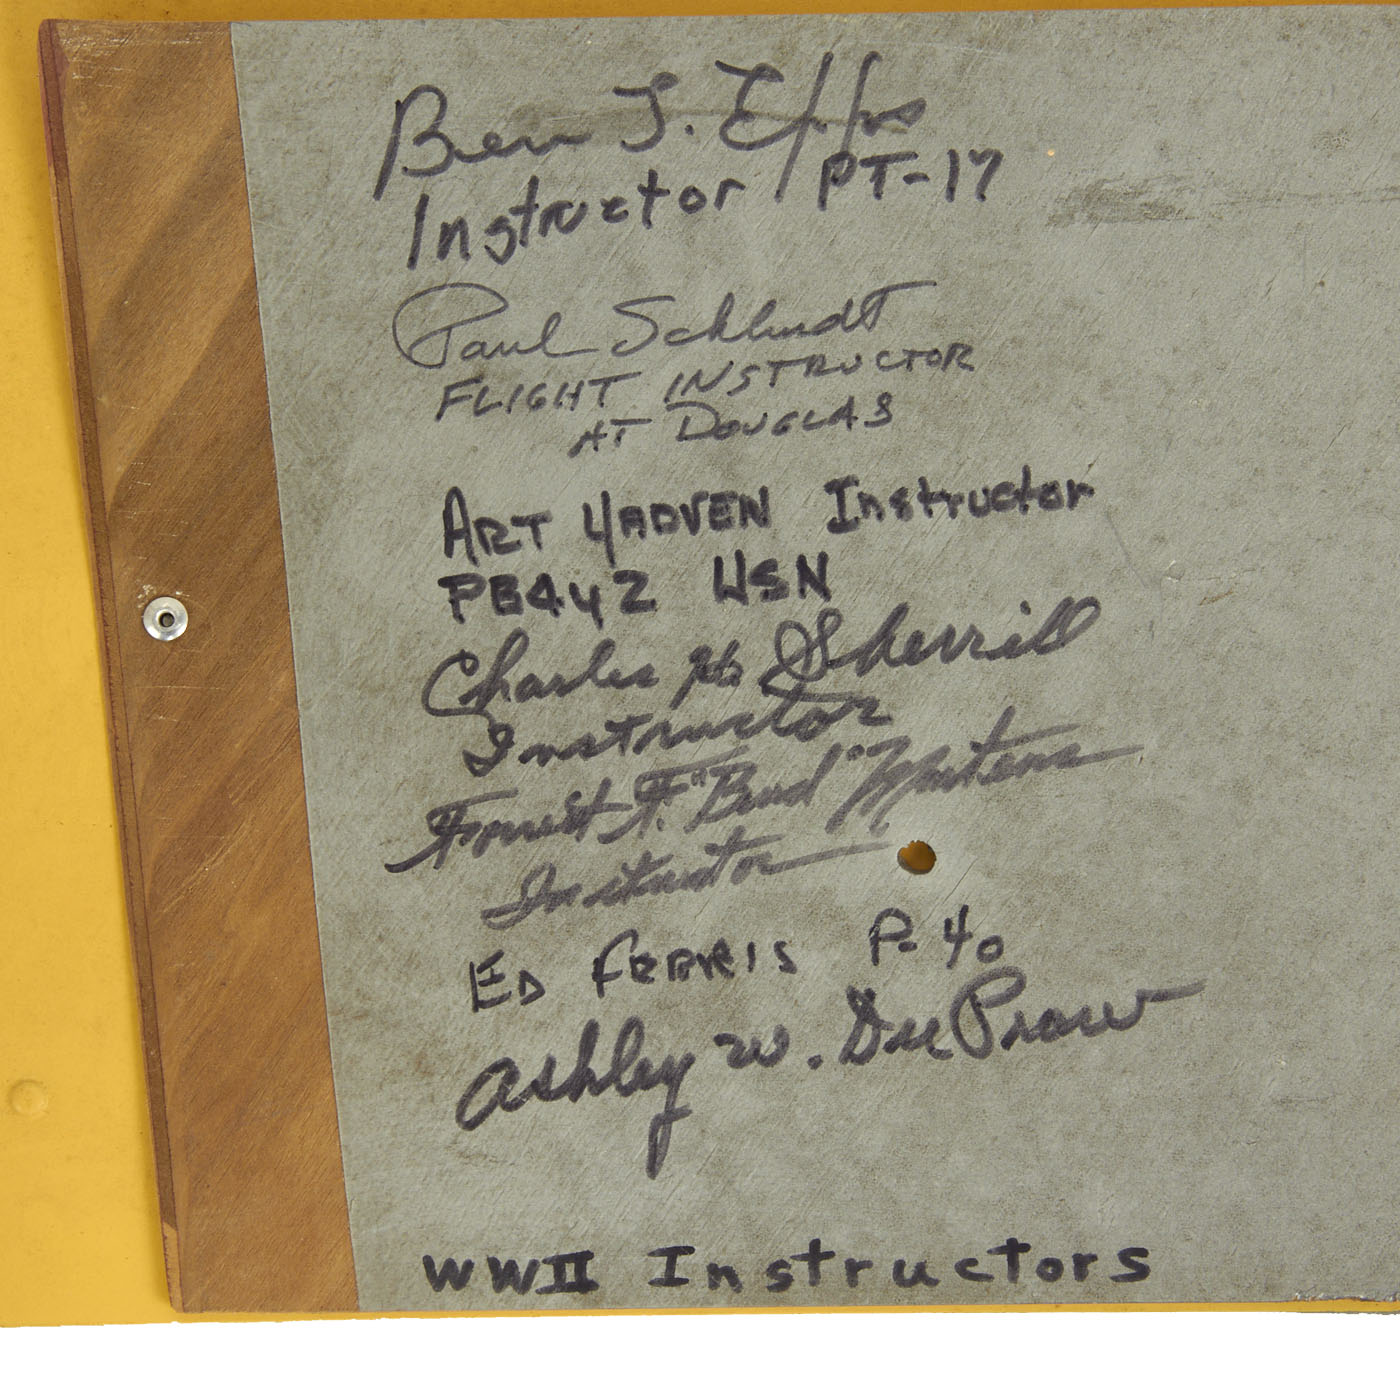 Ben T. Epps
Instructor PT-17
Paul Schlundt
FLIGHT INSTRUCTOR
AT DOUGLAS
ART YADVEN Instructor
PB4Y2 USN
Charles H. Sherrill
Instructor
Forrest F. "Bud" Martens
Instructor
ED FERRIS P-40
Ashley W. DuPraw
WWII Instructors